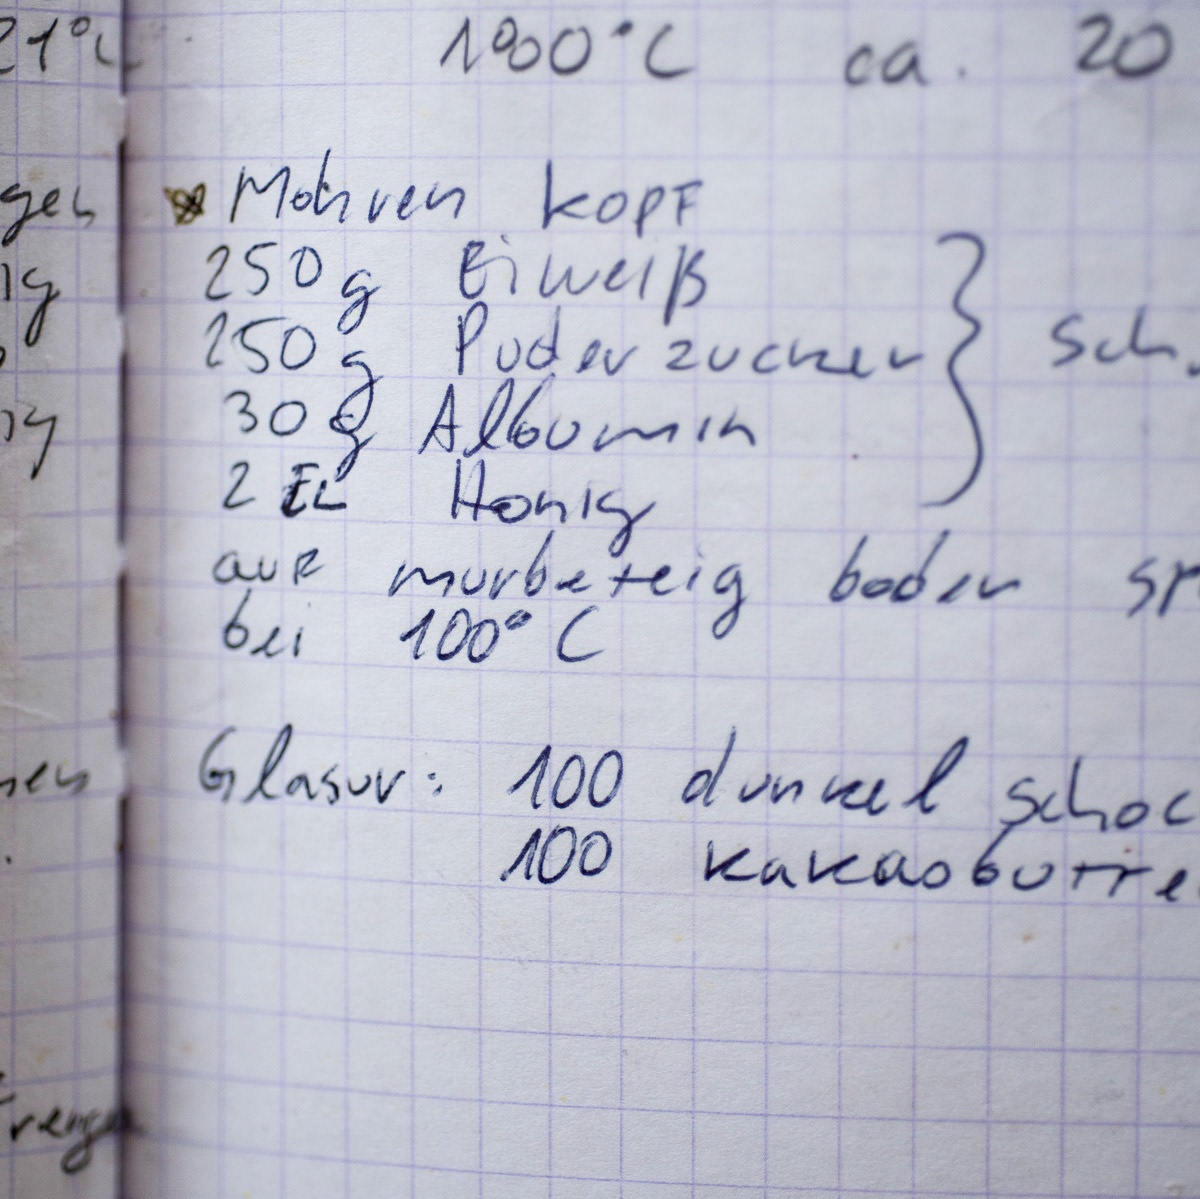 21°C
100°C ca. 20
Mohren kopf
250g Eiweiß
250g Puderzucker
30g Albumin
2 EL Honig
auf murbeteig boden
bei 100°C
Glasur: 100 dunkel schoc
100 kakaobutte